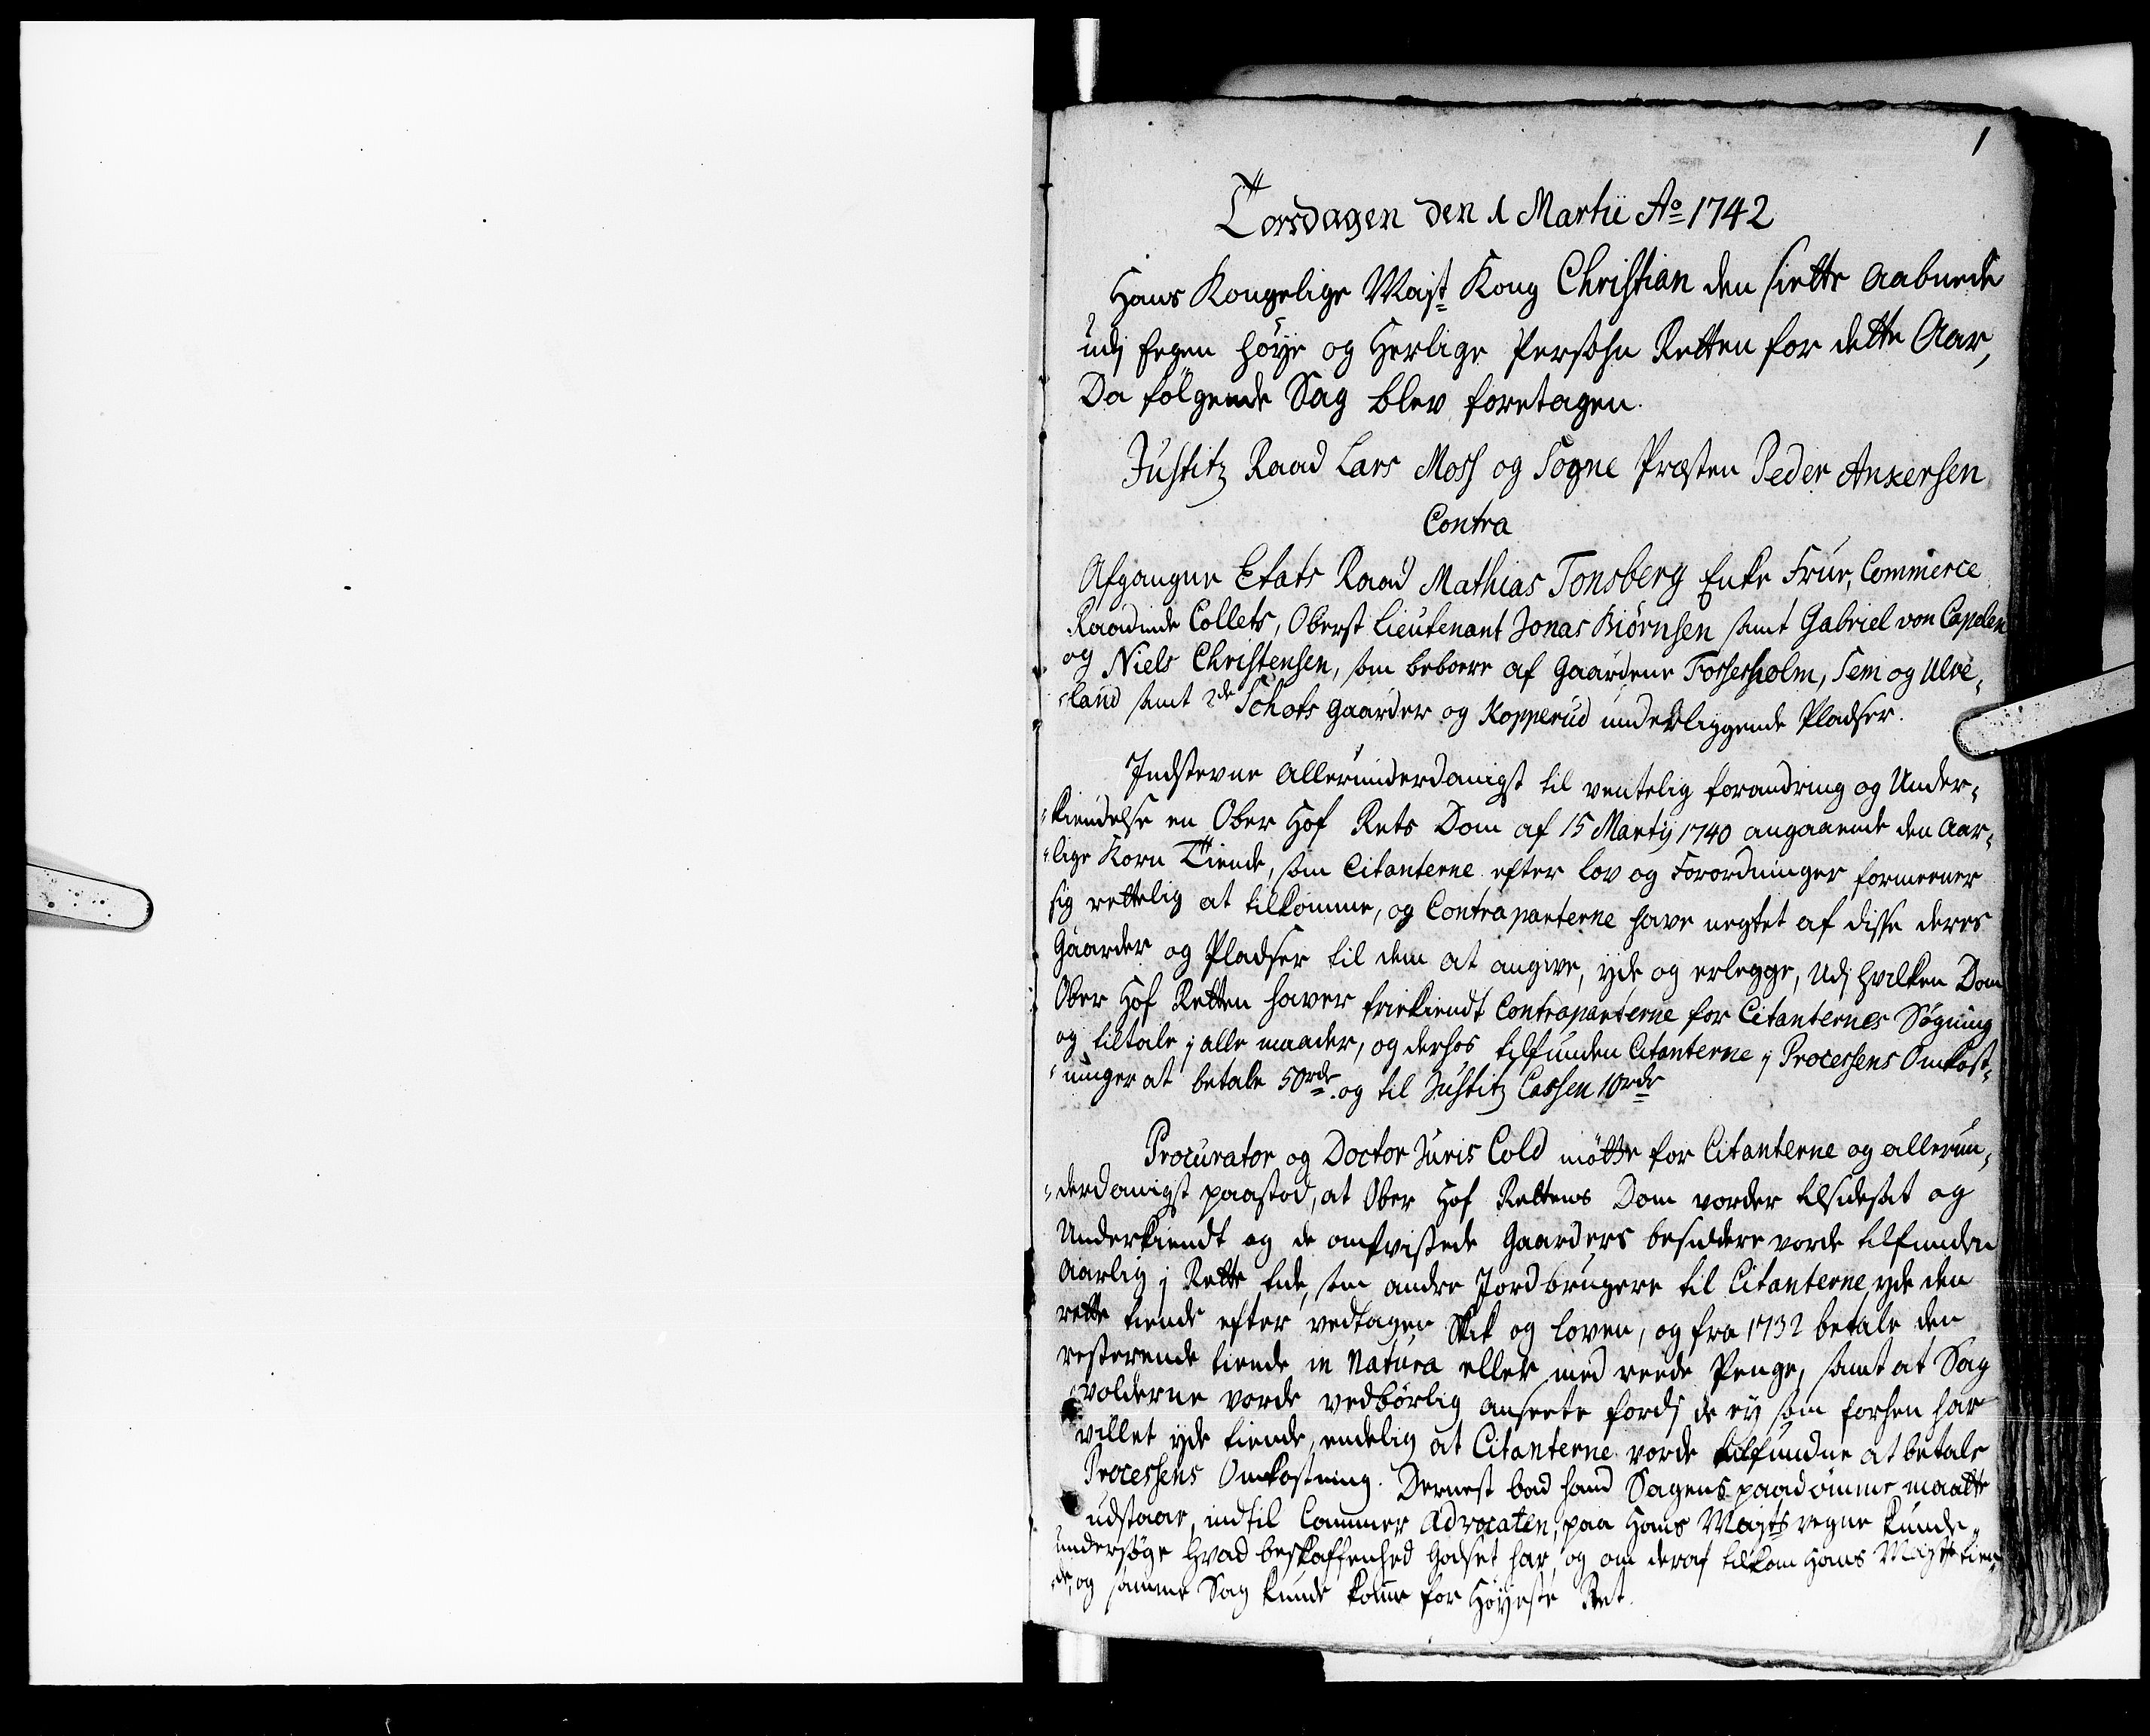 1
Torsdagen den 1 Martii Ao 1742
Hans Kongelige Mayst Kong Christian den siette aabnede
udj Egen høye og Herlige Persohn Retten for dette Aar,
Da følgende Sag blev foretagen.
Justitz Raad Lars Moss og Sogne Præsten Peder Ankersen
Contra
Afgangne Etats Raad Mathias Tonsberg Enke Frue, Commerce
Raadinde Collets, Oberst Lieutenant Jonas Biørnsen samt Gabriel von Capelen
og Niels Christensen, som beboere af Gaardene Fossesholm, Sem og Ulve,
"land samt 2de Schots gaarder og Kopperud underliggende Pladser.
Indstevne Allerunderdanigst til ventelig forandring og Under,
"kiendelse en Ober Hof Rets Dom af 15 Martij 1740 angaaende den Aar,
"lige Korn Tiende, som Citanterne efter Lov og Forordninger formeener
sig rettelig at tilkomme, og Contraparterne have negtet af disse deres
Gaarder og Pladser til dem at angive, yde og erlegge, Udj hvilken Dom
Ober Hof Retten haver friekiendt Contraparterne for Citanternes Søgning
og tiltale j alle maader, og derhos tilfunden Citanterne j Processens Omkost,
"ninger at betale 50 rdr og til Justitz Cassen 10 rdr
Procurator og Doctor Juris Cold møtte for Citanterne og allerun,
"derdanigst paastod, at Ober Hof Rettens Dom vorder tilsidesat og
Underkiendt og de omtvistede Gaarders besiddere vorde tilfunden
Aarlig j Rette tide, som andre Jordbrugere til Citanterne yde den
rette tiende efter vedtagen Skik og Loven, og fra 1732 betale den
resterende tiende in Natura eller med reede Penge, samt at Sag
volderne vorde vedbørlig anseete fordj de ey som forhen har
villet yde tiende, endelig at Citanterne vorde tilfundne at betale
Processens Omkostning. Dernest bad hand Sagens paadømme maatte
udstaae, indtil Cammer Advocaten, paa Hans Mayts vegne kunde
undersøge hvad beskaffenhed Godset har, og om deraf tilkom Hans Mayst tien,
"de, og samme Sag kunde komme for Høyeste Ret.